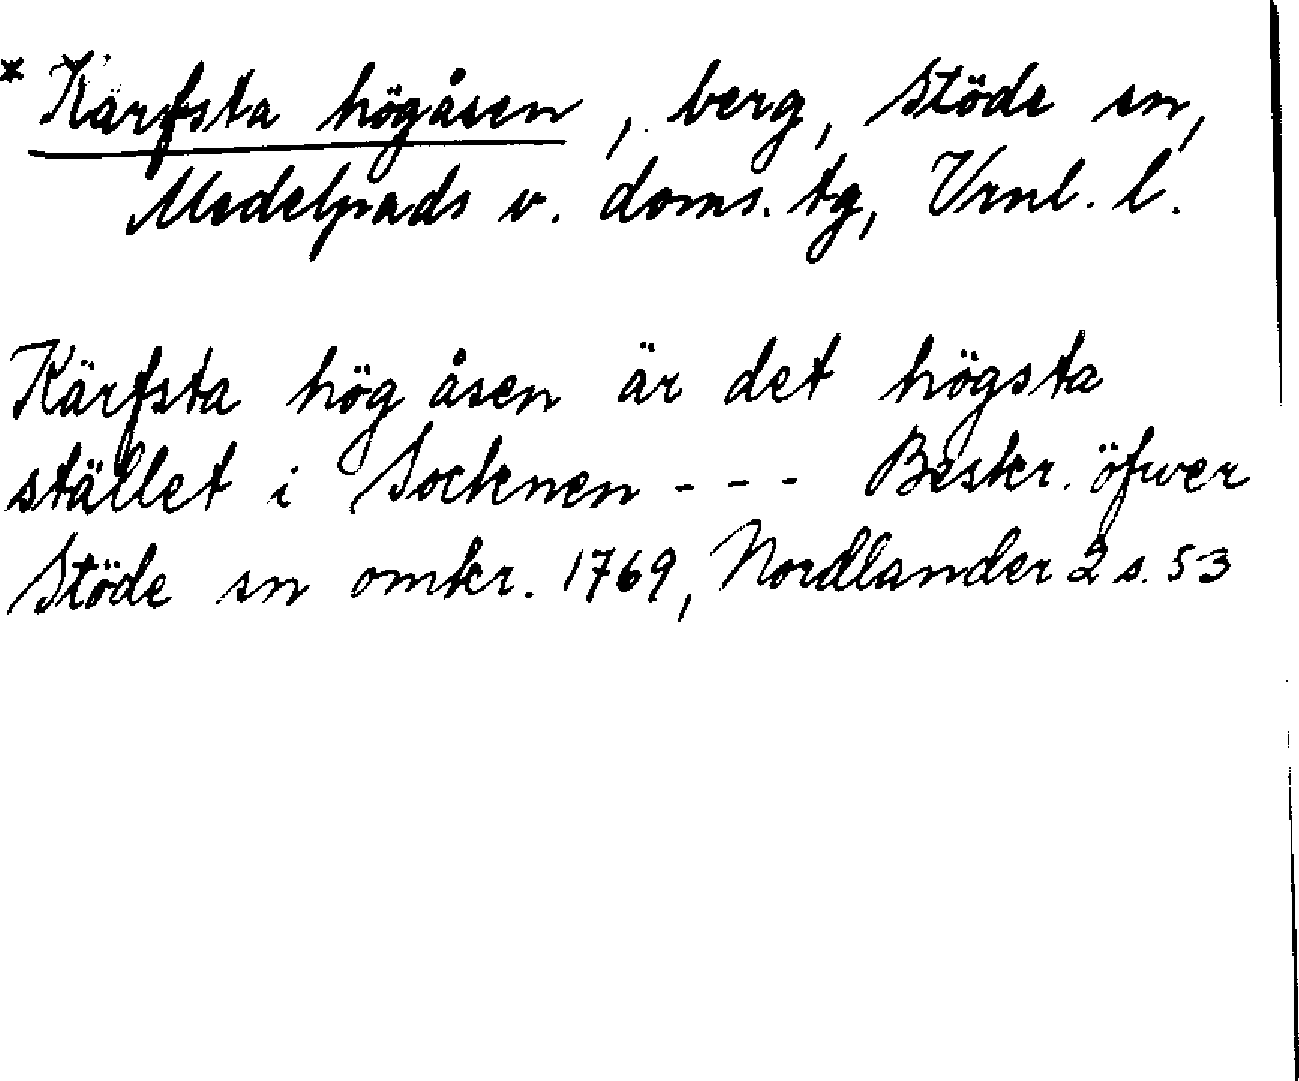 * Kärfsta högåsen, berg, Stöde sn,
Medelpads v. doms. tg, Vrnl. l.
Kärfsta hög åsen är det högsta
stället i Socknen - - - Beskr. öfwer
Stöde sn omkr. 1769, Nordlander 2 s. 53